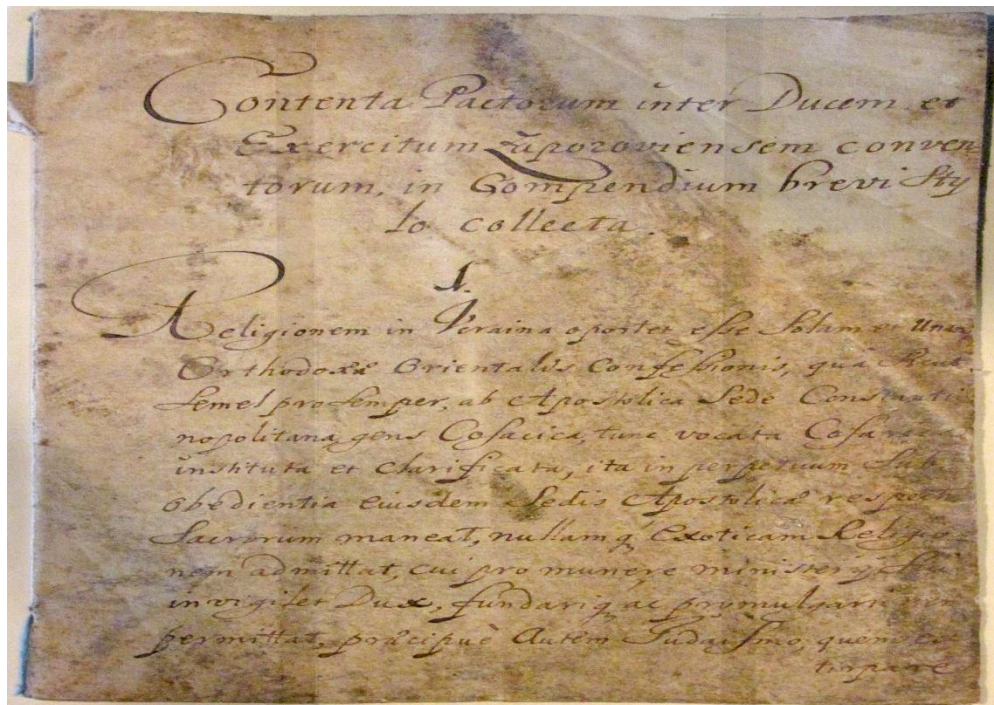 Contenta Pactorum inter Ducem et
Exercitum Zaporoviensem conven
torum, in Compendium brevi Sty
lo collecta.
1.
Religionem in Ucraina oportet esse Solam et Unam
Orthodoxæ Orientalis Confessionis, quâ
Semel pro Semper, ab Apostolica Sede Constanti
nopolitana, gens Cosacica, tunc vocata
instituta et clarificata, ita in perpetuum Sub
obedientia eiusdem Sedis Apostolicæ respectu
Sacrorum maneat, nullamq́ Exoticam Religio
nem admittat, cui pro munere ministerij Sui
invigilet Dux, fundariq́ ac promulgari non
permittat, præcipuè autem Judaismo, quem ex
tirpare